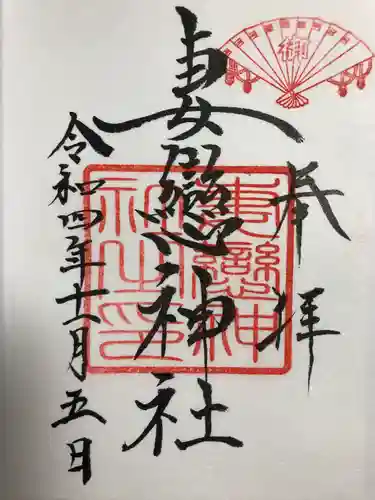 奉拝
妻戀神社
令和四年十一月五日
妻戀神
社之印